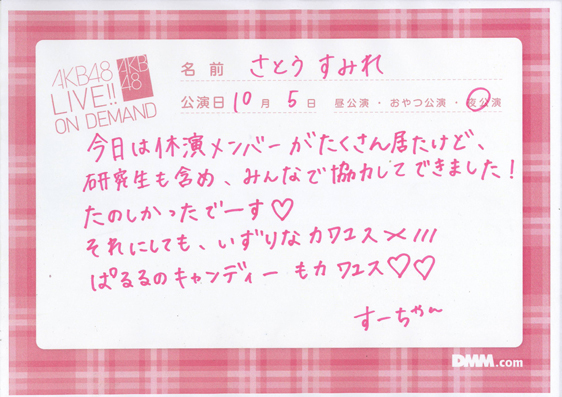 AKB48
LIVE!!
ON DEMAND
AKB
48
名前 さとう すみれ
公演日 10月 5日 昼公演・おやつ公演・夜公演
今日は休演メンバーがたくさん居たけど、
研究生も含め、みんなで協力してできました!
たのしかったでーす♡
それにしても、いずりなカワユス///
ぱるるのキャンディーもカワユス♡♡
すーちゃん
DMM.com